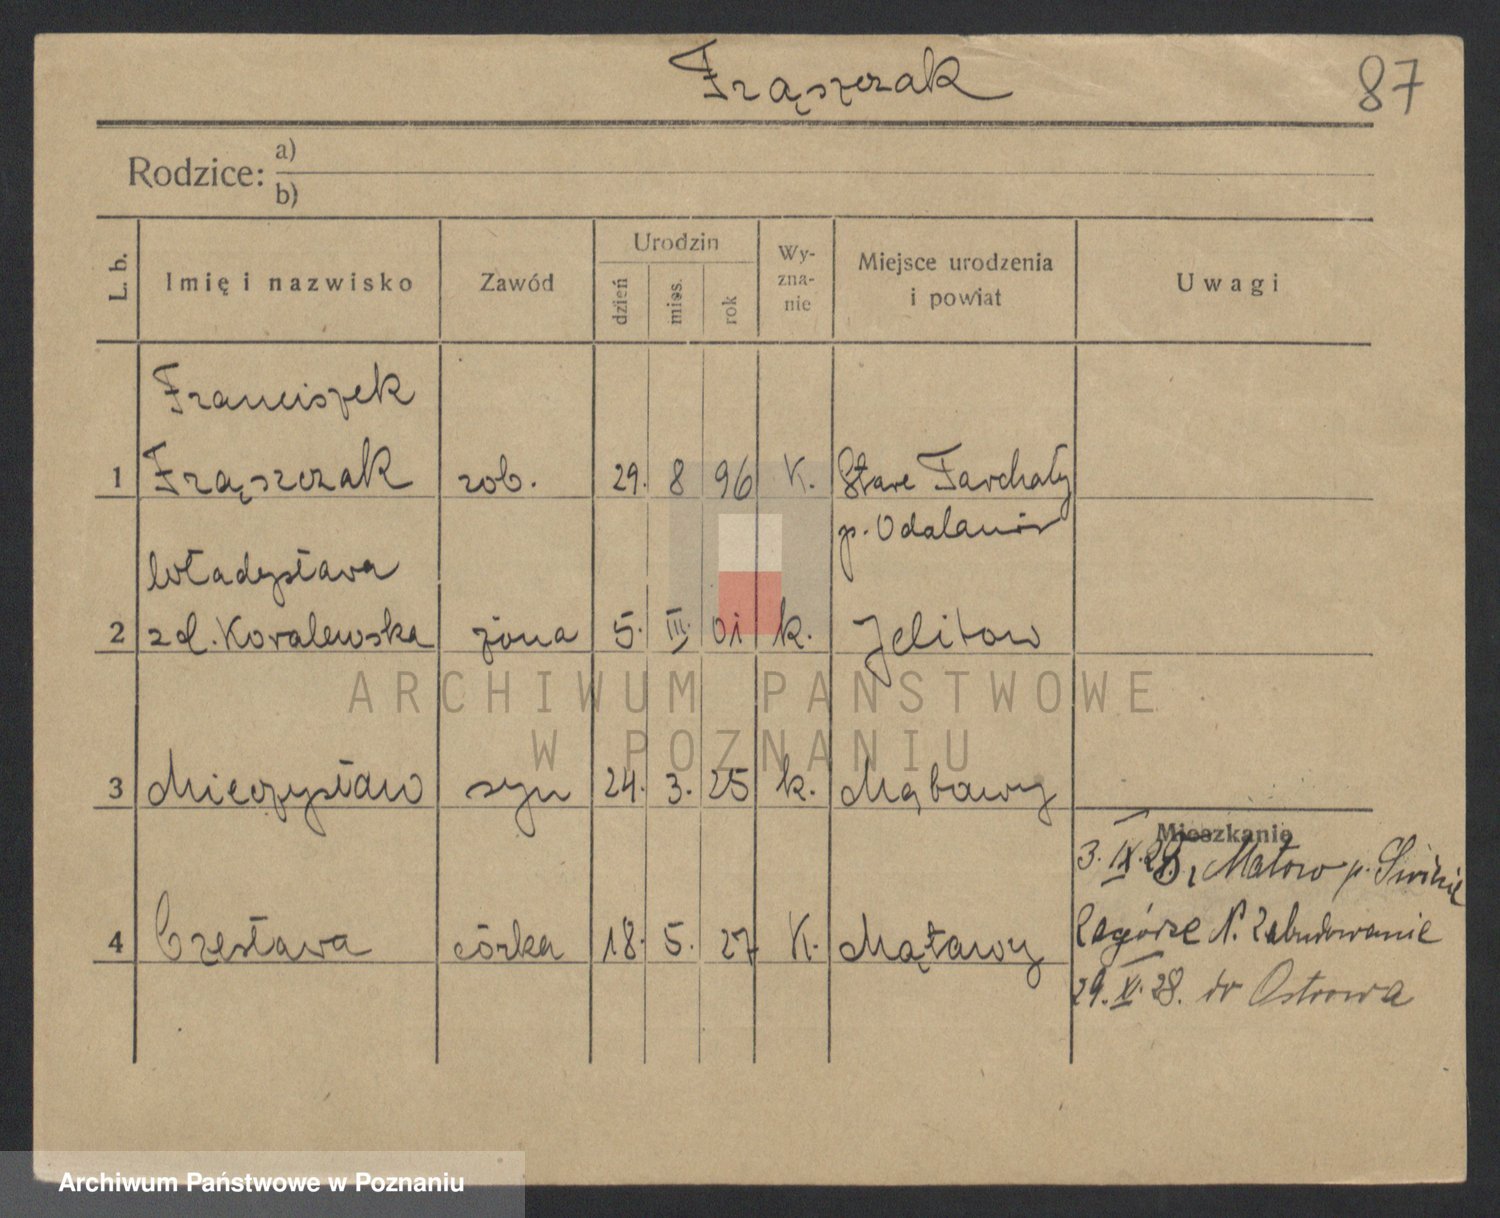 Frąszczak
87
Rodzice: a)
b)
L. b.
Imię i nazwisko
Zawód
Urodzin
dzień
mies.
rok
Wy-
zna-
nie
Miejsce urodzenia
i powiat
Uwagi
Franciszek
1 Frąszczak rob. 29. 8 96 K. Stare Tarchały
p. Odolanów
Władysława
2 zd. Kowalewska żona 5. III. 01 k. Jelitow
ARCHIWUM PAŃSTWOWE
W POZNANIU
3 Mieczysław syn 24. 3. 25 k. Mątawy
Mieszkanie
3. IX. 28. Małow p.
4 Czesława córka 18. 5. 27 K. Mątawy
Zagórze N. Zabudowanie
29. XI. 28. do Ostrowa
Archiwum Państwowe w Poznaniu